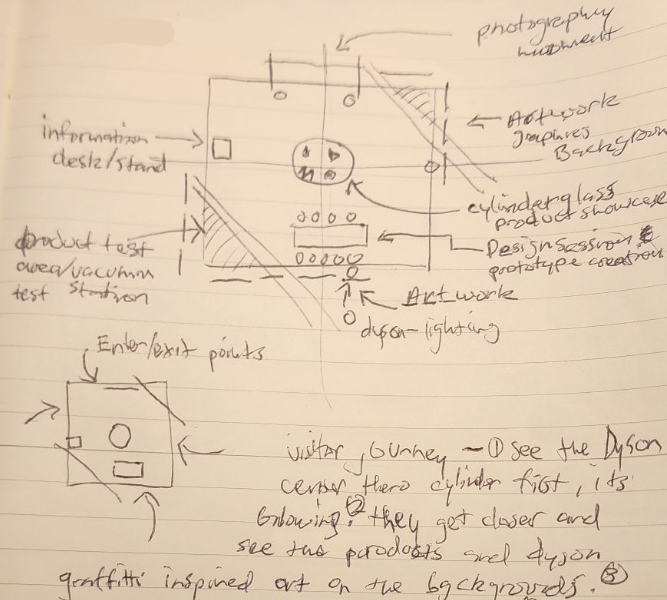 photography
information
desk/stand
Artwork
graphures
Background
cylinder glass
product showcase
product test
area/vacumm
test station
Design session &
prototype creation
Artwork
dyson-lighting
Enter/exit points
visitor Journey - ① see the Dyson
center hero cylinder first, its
Glowing! ② they get closer and
see the products and dyson
graffitti inspired art on the backgrounds. ③